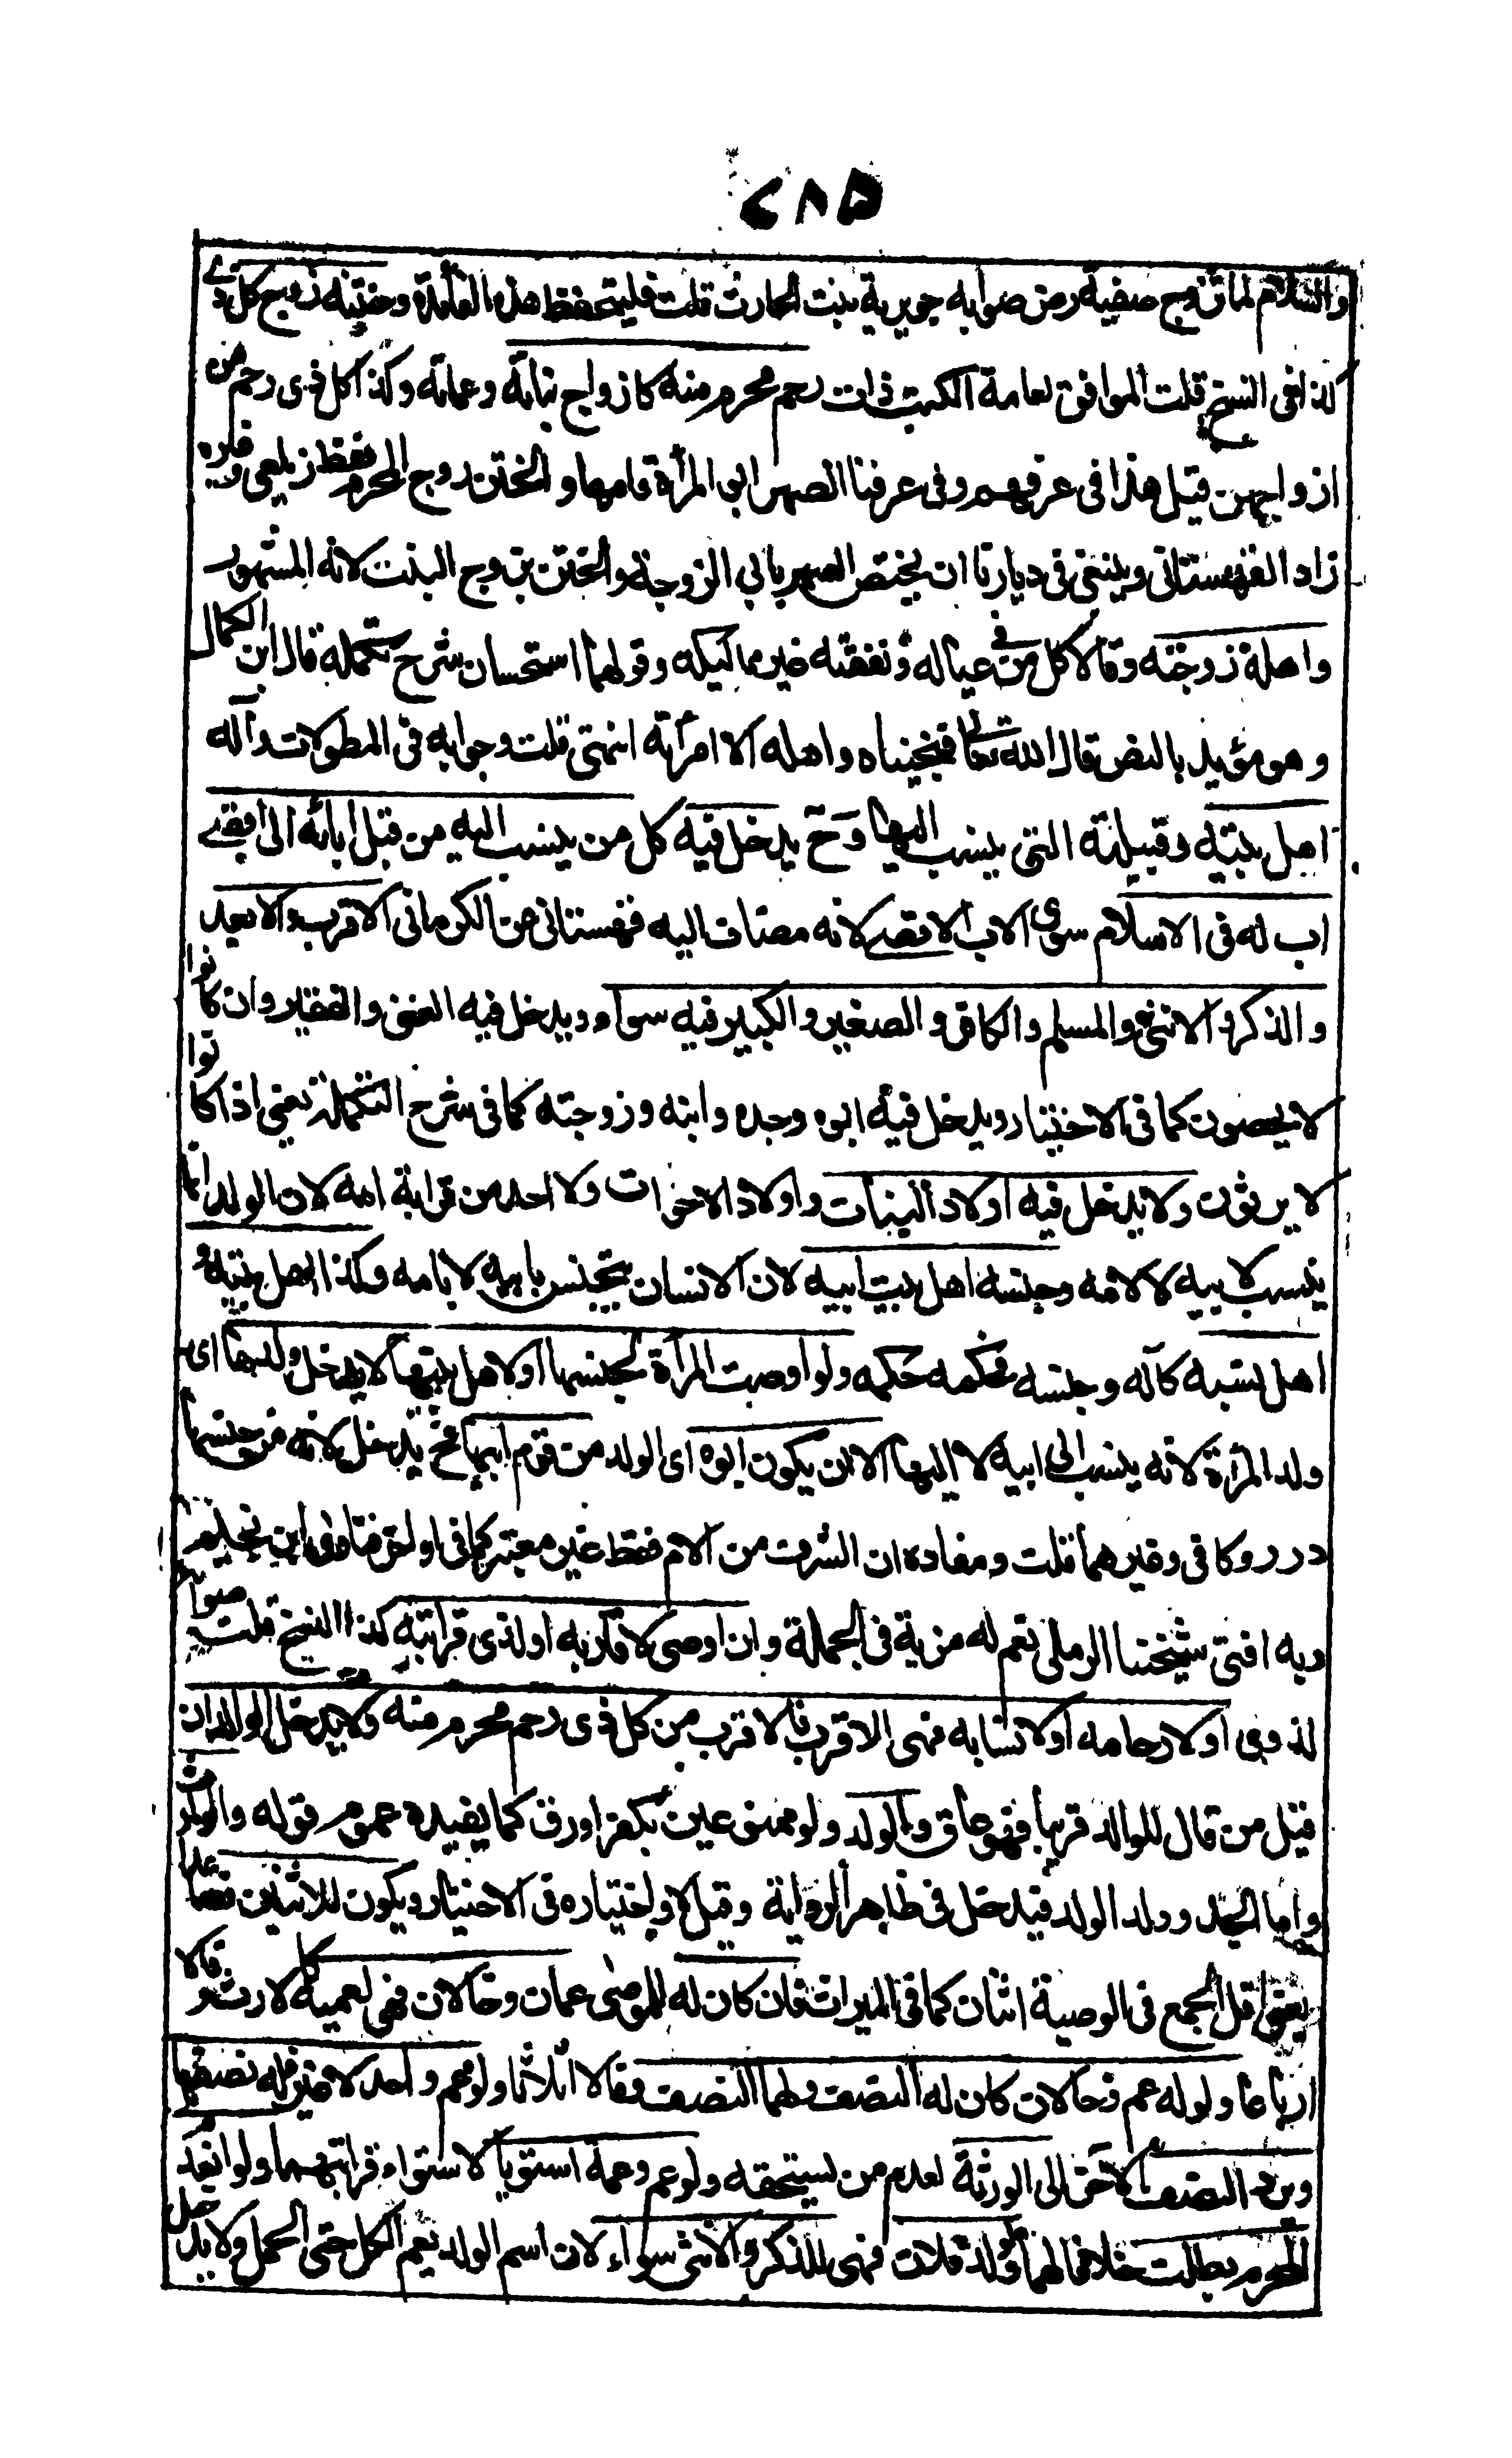 ٢٨٥
والسلام لما تزوج صفية رمز صوابه جويرية بنت الحارث قلت فليتحفظ هذه الفائدة وختنه زوج كل ذي
كذا في النسخ قلت الموافق لعامة الكتب ذات رحم محرم منه كازواج بناته وعماته وكذا كل ذي رحم من
ازواجهن قيل هذا في عرفهم وفي عرفنا الصهر ابو المرأة وامها والختن زوج المحرم فقط زيلعي وغيره
زاد القهستاني وينبغي في ديارنا ان يختص الصهر بابي الزوجة والختن بزوج البنت لانه المشهور
واهله زوجته وقالا كل من في عياله ونفقته غير مماليكه وقولهما استحسان شرح تكمله قال ابن الكمال
وهو مؤيد بالنص قال الله تعالى فنجيناه واهله الا امرأته انتهى قلت وجوابه في المطولات وآله
اهل بيته وقبيلته التي ينسب اليها وح يدخل فيه كل من ينسب اليه من قبل ابائه الى اقصى
اب له في الاسلام سوى الاب الاقصى لانه مضاف اليه قهستاني عن الكرماني الاقرب والابعد
والذكر والانثى والمسلم والكافر والصغير والكبير فيه سواء ويدخل فيه الغني والفقير وان كانوا
لا يحصون كما في الاختيار ويدخل فيه ابوه وجده وابنه وزوجته كما في شرح التكملة يعني اذا كانوا
لا يرثون ولا يدخل فيه اولاد البنات واولاد الاخوات ولا احد من قرابة امه لان الولد انما
ينسب لابيه لا لامه وجنسه اهل بيت ابيه لان الانسان يتجنس بابيه لا بامه وكذا اهل بيته و
اهل نسبه كآله وجنسه فحكمه حكمه ولو اوصت المرأة لجنسها او لاهل بيتها لا يدخل ولدها اي
ولد المرأة لانه ينسب الى ابيه لا اليها الا ان يكون ابوه اي الولد من قوم ابيها فح يدخل لانه من جنسها
درر وكافي وغيرهما قلت ومفاده ان الشرف من الام فقط غير معتبر كما في اواخر فتاوى ابن نجيم
وبه افتى شيخنا الرملي نعم له مزية في الجملة وان اوصى لاقاربه او لذي قرابته كذا النسخ قلت صوابه
لذوي او لارحامه او لانسابه فهي الاقرب فالاقرب من كل ذي رحم محرم منه ولا يدخل الوالدان
قيل من قال للوالد قريبا فهو عاق والولد ولو ممنوعين بكفر او رق كما يفيده عموم قوله والوارث
واما الجد وولد الولد فيدخل في ظاهر الرواية وقيل لا واختاره في الاختيار ويكون للاثنين فصاعدا
يعني اقل الجمع في الوصية اثنان كما في الميراث فان كان له للموصي عمان وخالان فهي لعميه كالارث وقالا
ارباعا ولو له عم وخالان كان له النصف ولهما النصف وقالا اثلاثا ولو عم واحد لا غير فله نصفها
ويرد النصف الاخر الى الورثة لعدم من يستحقه ولو عم وعمة استويا لاستواء قرابتهما ولو انعدم
المحرم بطلت خلافا لهما ولولد فلان فهي للذكر والانثى سواء لان اسم الولد يعم الكل حتى الحمل ولا يدخل